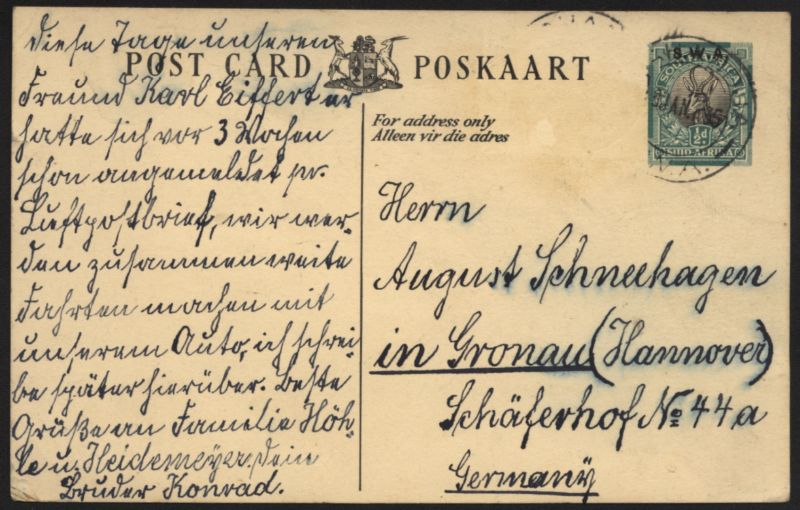 diese Tage unseren
Freund Karl Eiffert er
hatte sich vor 3 Wochen
schon angemeldet pr.
Luftpostbrief, wir wer-
den zusammen weite
Fahrten machen mit
unserem Auto, ich schrei-
be später hierüber. Beste
Grüße an Familie Höh-
le u. Heidemeyer. Dein
Bruder Konrad.
POST CARD POSKAART
For address only
Alleen vir die adres
S.W.A.
½d
SUID-AFRIKA
JAN
Herrn
August Schneehagen
in Gronau (Hannover)
Schäferhof No 44a
Germany